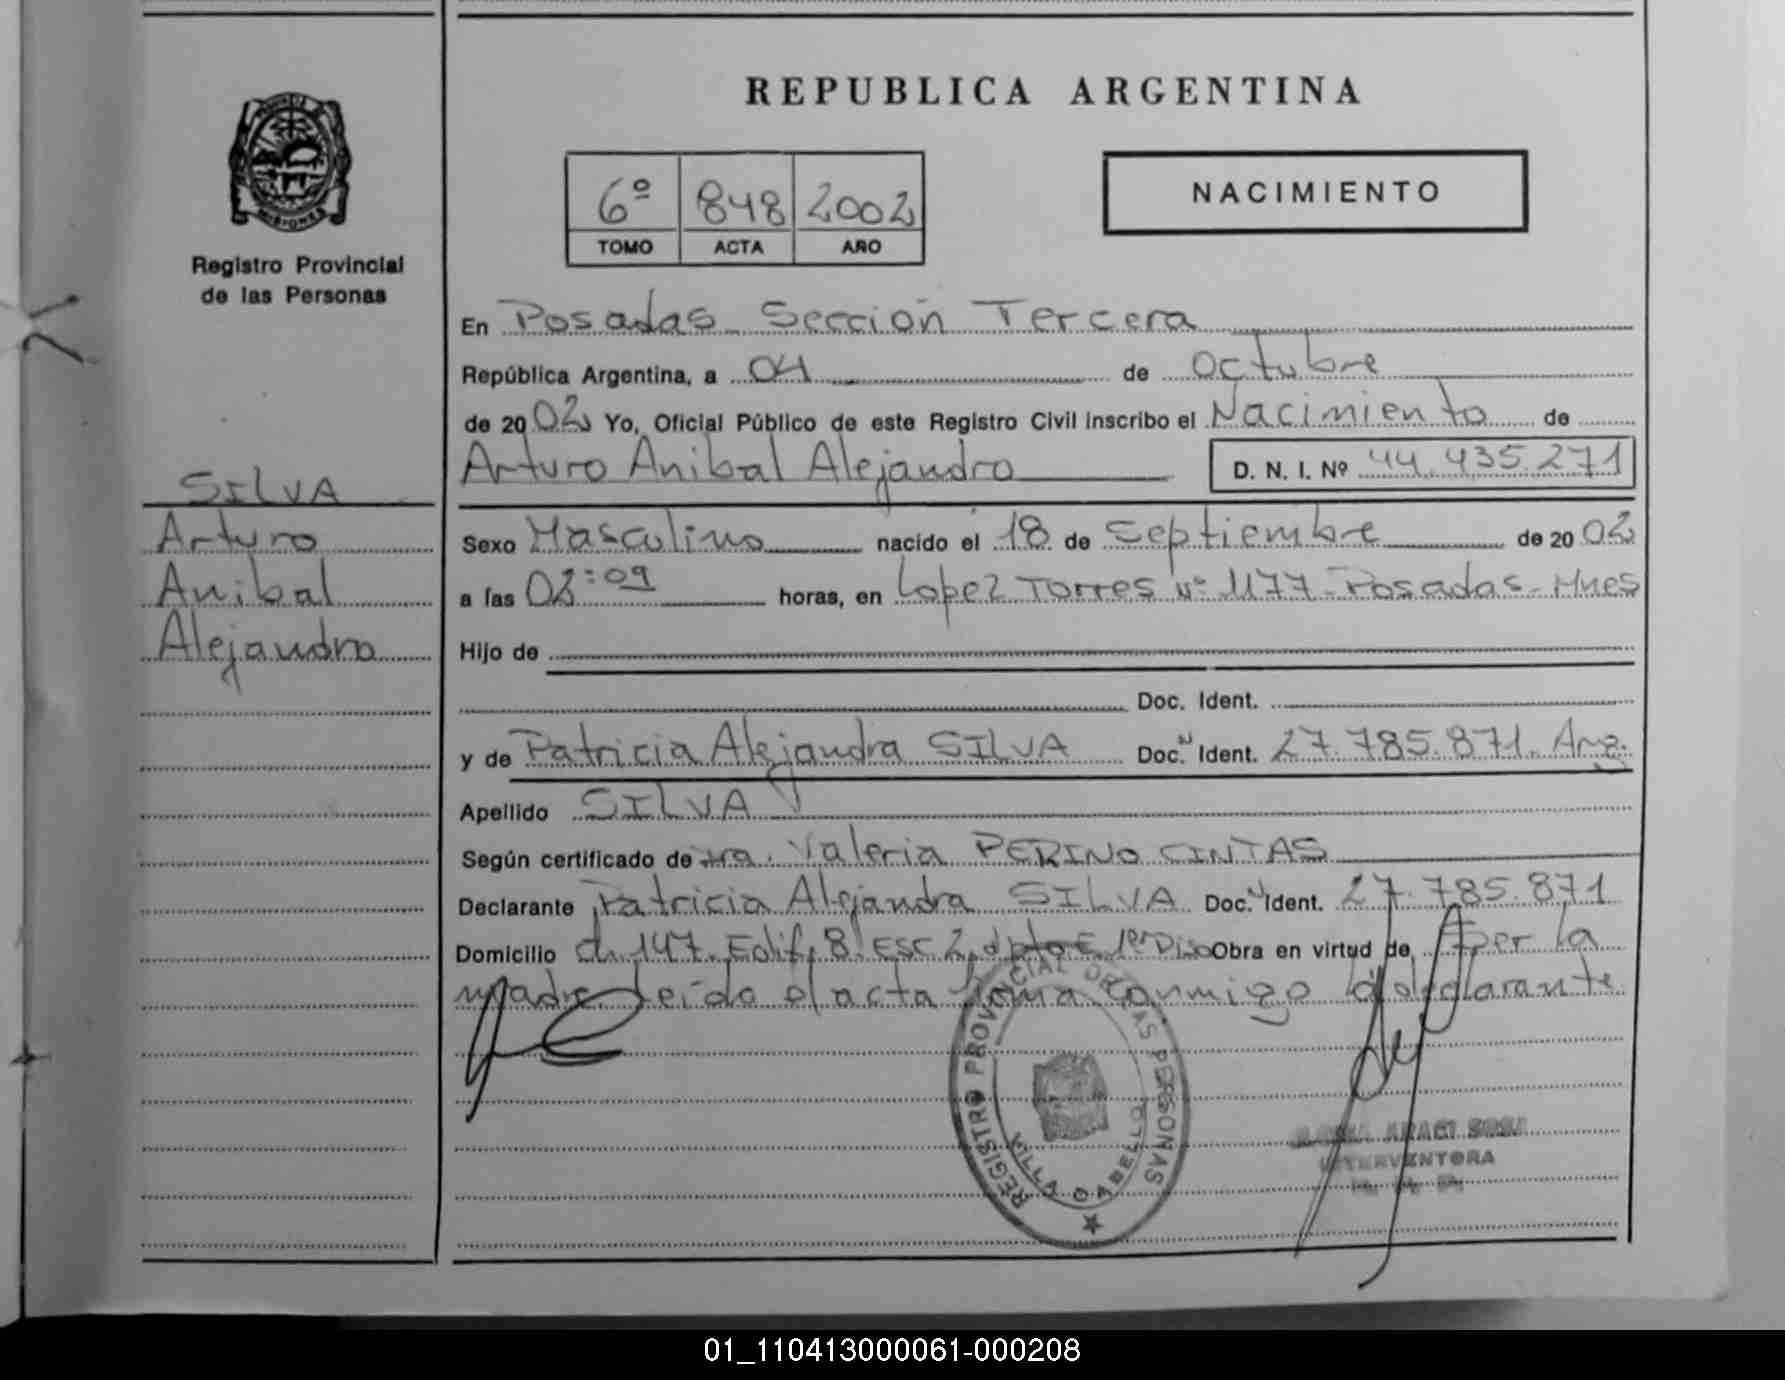 REPUBLICA ARGENTINA
MISIONES
Registro Provincial
de las Personas
6º 848 2002
TOMO ACTA AÑO
NACIMIENTO
En Posadas Sección Tercera
República Argentina, a 04 de Octubre
de 2002 Yo, Oficial Público de este Registro Civil inscribo el Nacimiento de
Arturo Anibal Alejandro D. N. I. Nº 44.435.271
SILVA
Arturo
Anibal
Alejandro
Sexo Masculino nacido el 18 de Septiembre de 2002
a las 02:09 horas, en Lopez Torres Nº 1177 - Posadas - Mnes
Hijo de
Doc. Ident.
y de Patricia Alejandra SILVA Doc. Ident. 27.785.871. Arg.
Apellido SILVA
Según certificado de Dra. Valeria PERINO CINTAS
Declarante Patricia Alejandra SILVA Doc. Ident. 27.785.871
Domicilio ch. 147. Edif. 8 Esc 2, dpto E 1er Piso Obra en virtud de per la
madre Leída el acta firma conmigo el declarante
REGISTRO PROVINCIAL DE LAS PERSONAS
VILLA CABELLO
ARACI SOSA
INTERVENTORA
01_110413000061-000208